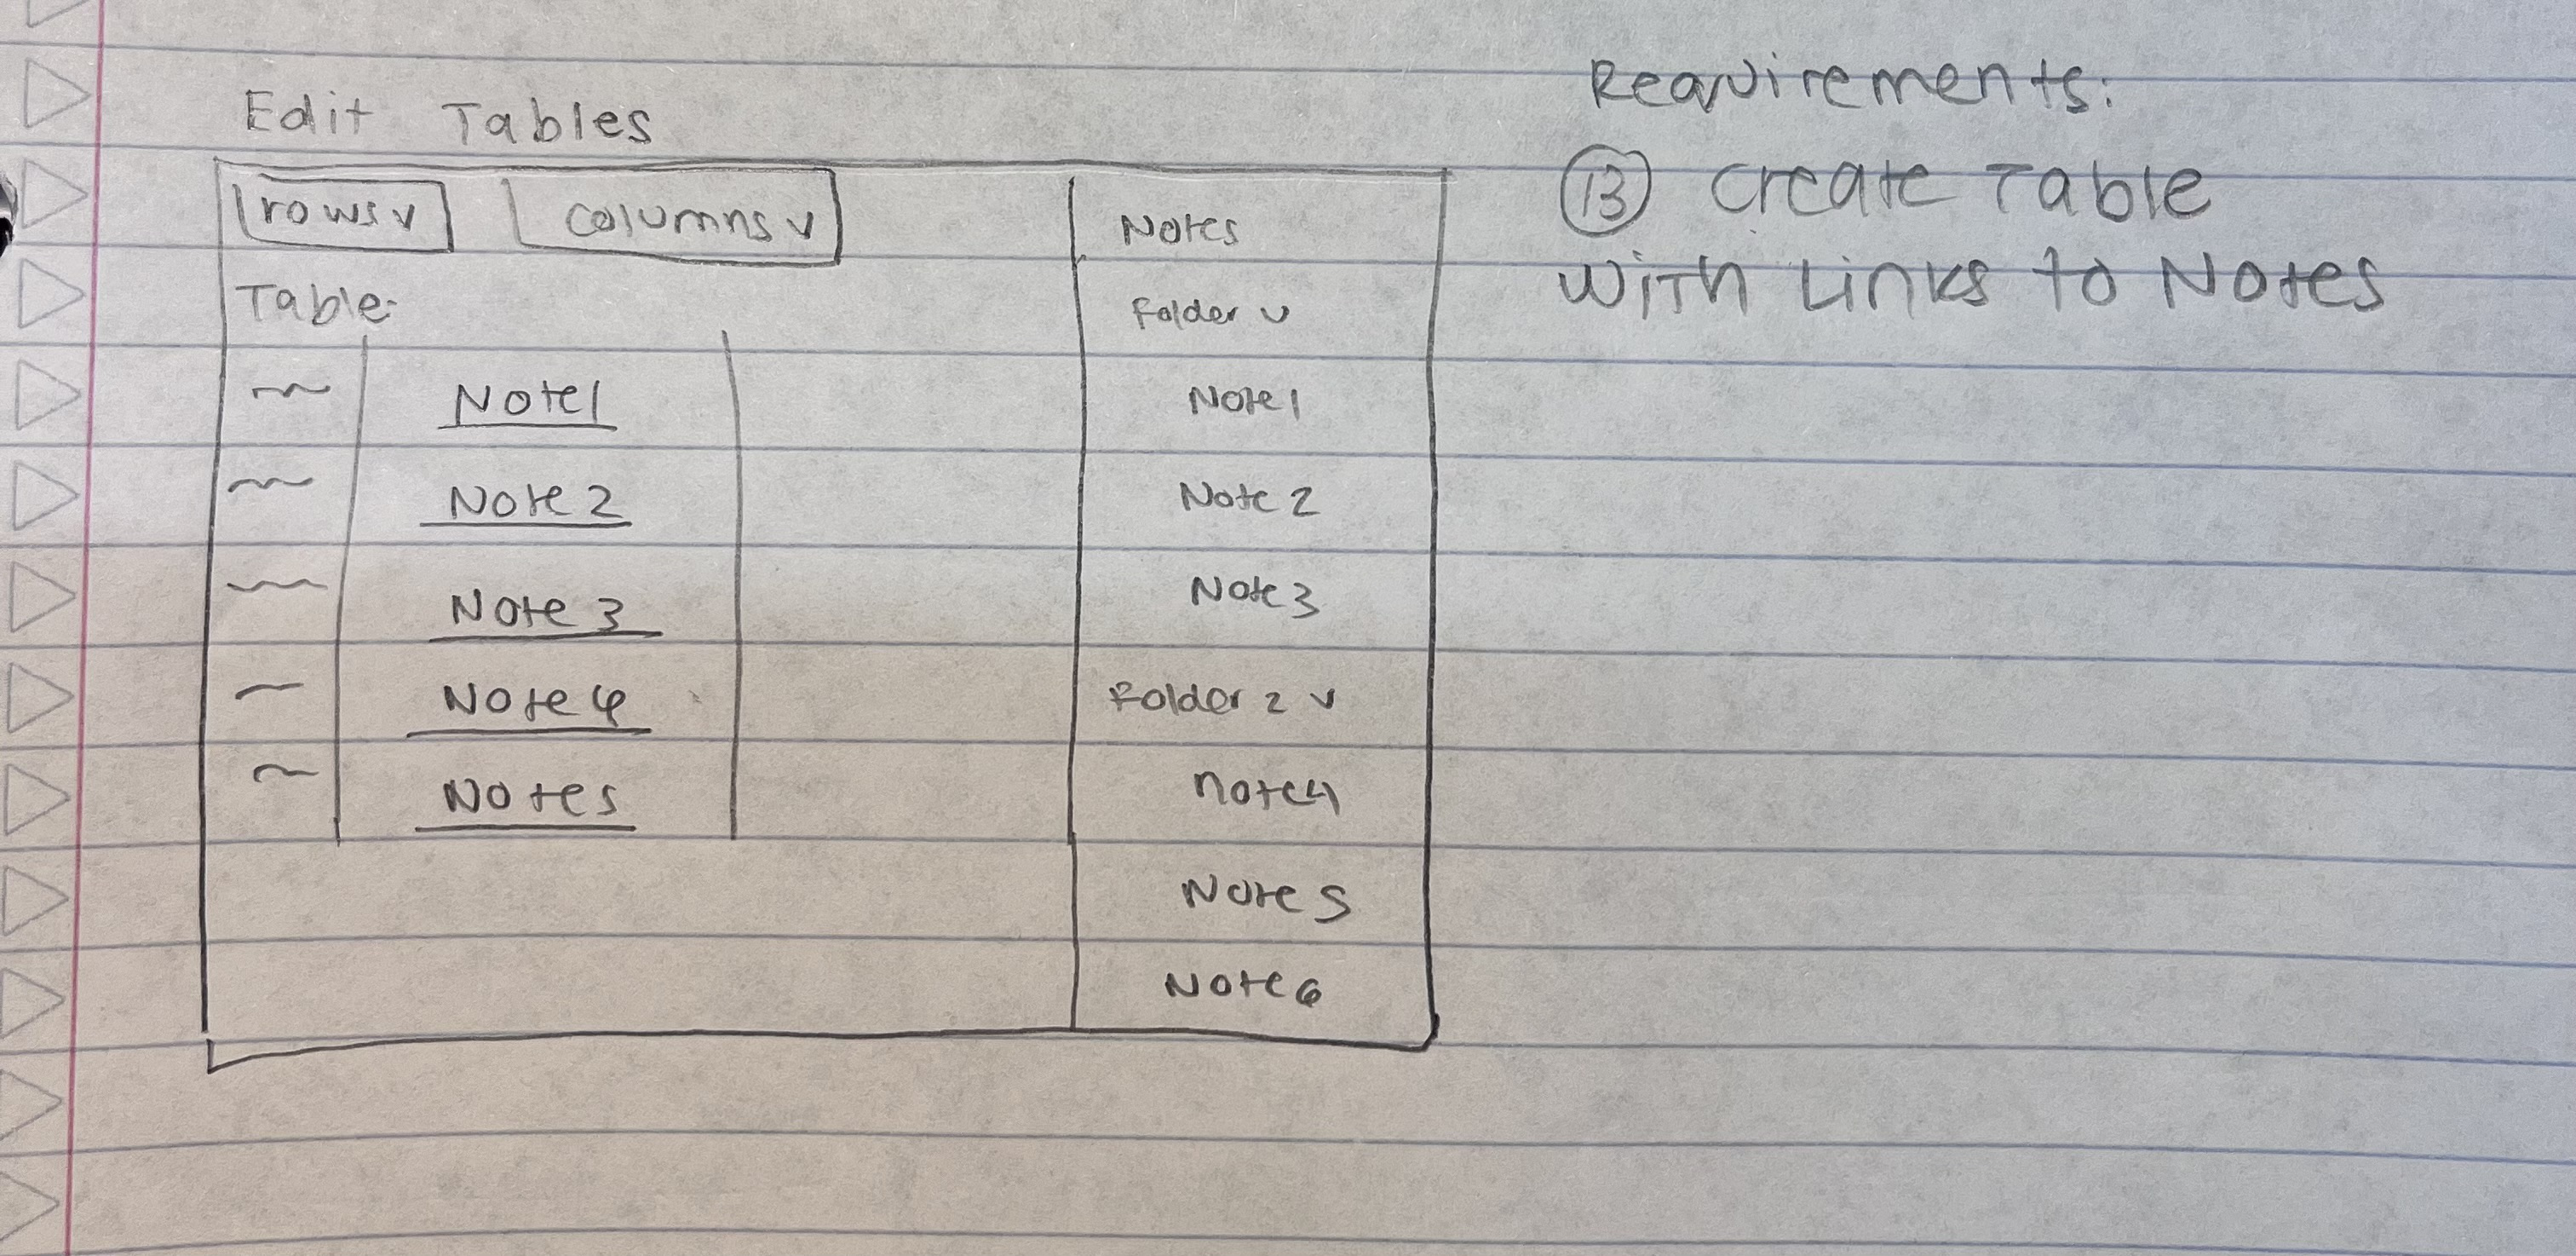 Edit Tables
rows v
columns v
Table:
Note1
Note 2
Note 3
Note 4
Notes
Notes
Folder v
Note 1
Note 2
Note 3
Folder 2 v
note4
Note 5
Note 6
Requirements:
13 Create Table
with Links to Notes